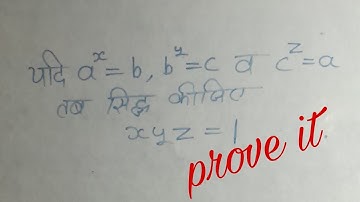 यदि a^x = b, b^y = c व c^z = a
तब सिद्ध कीजिए
xyz = 1
prove it